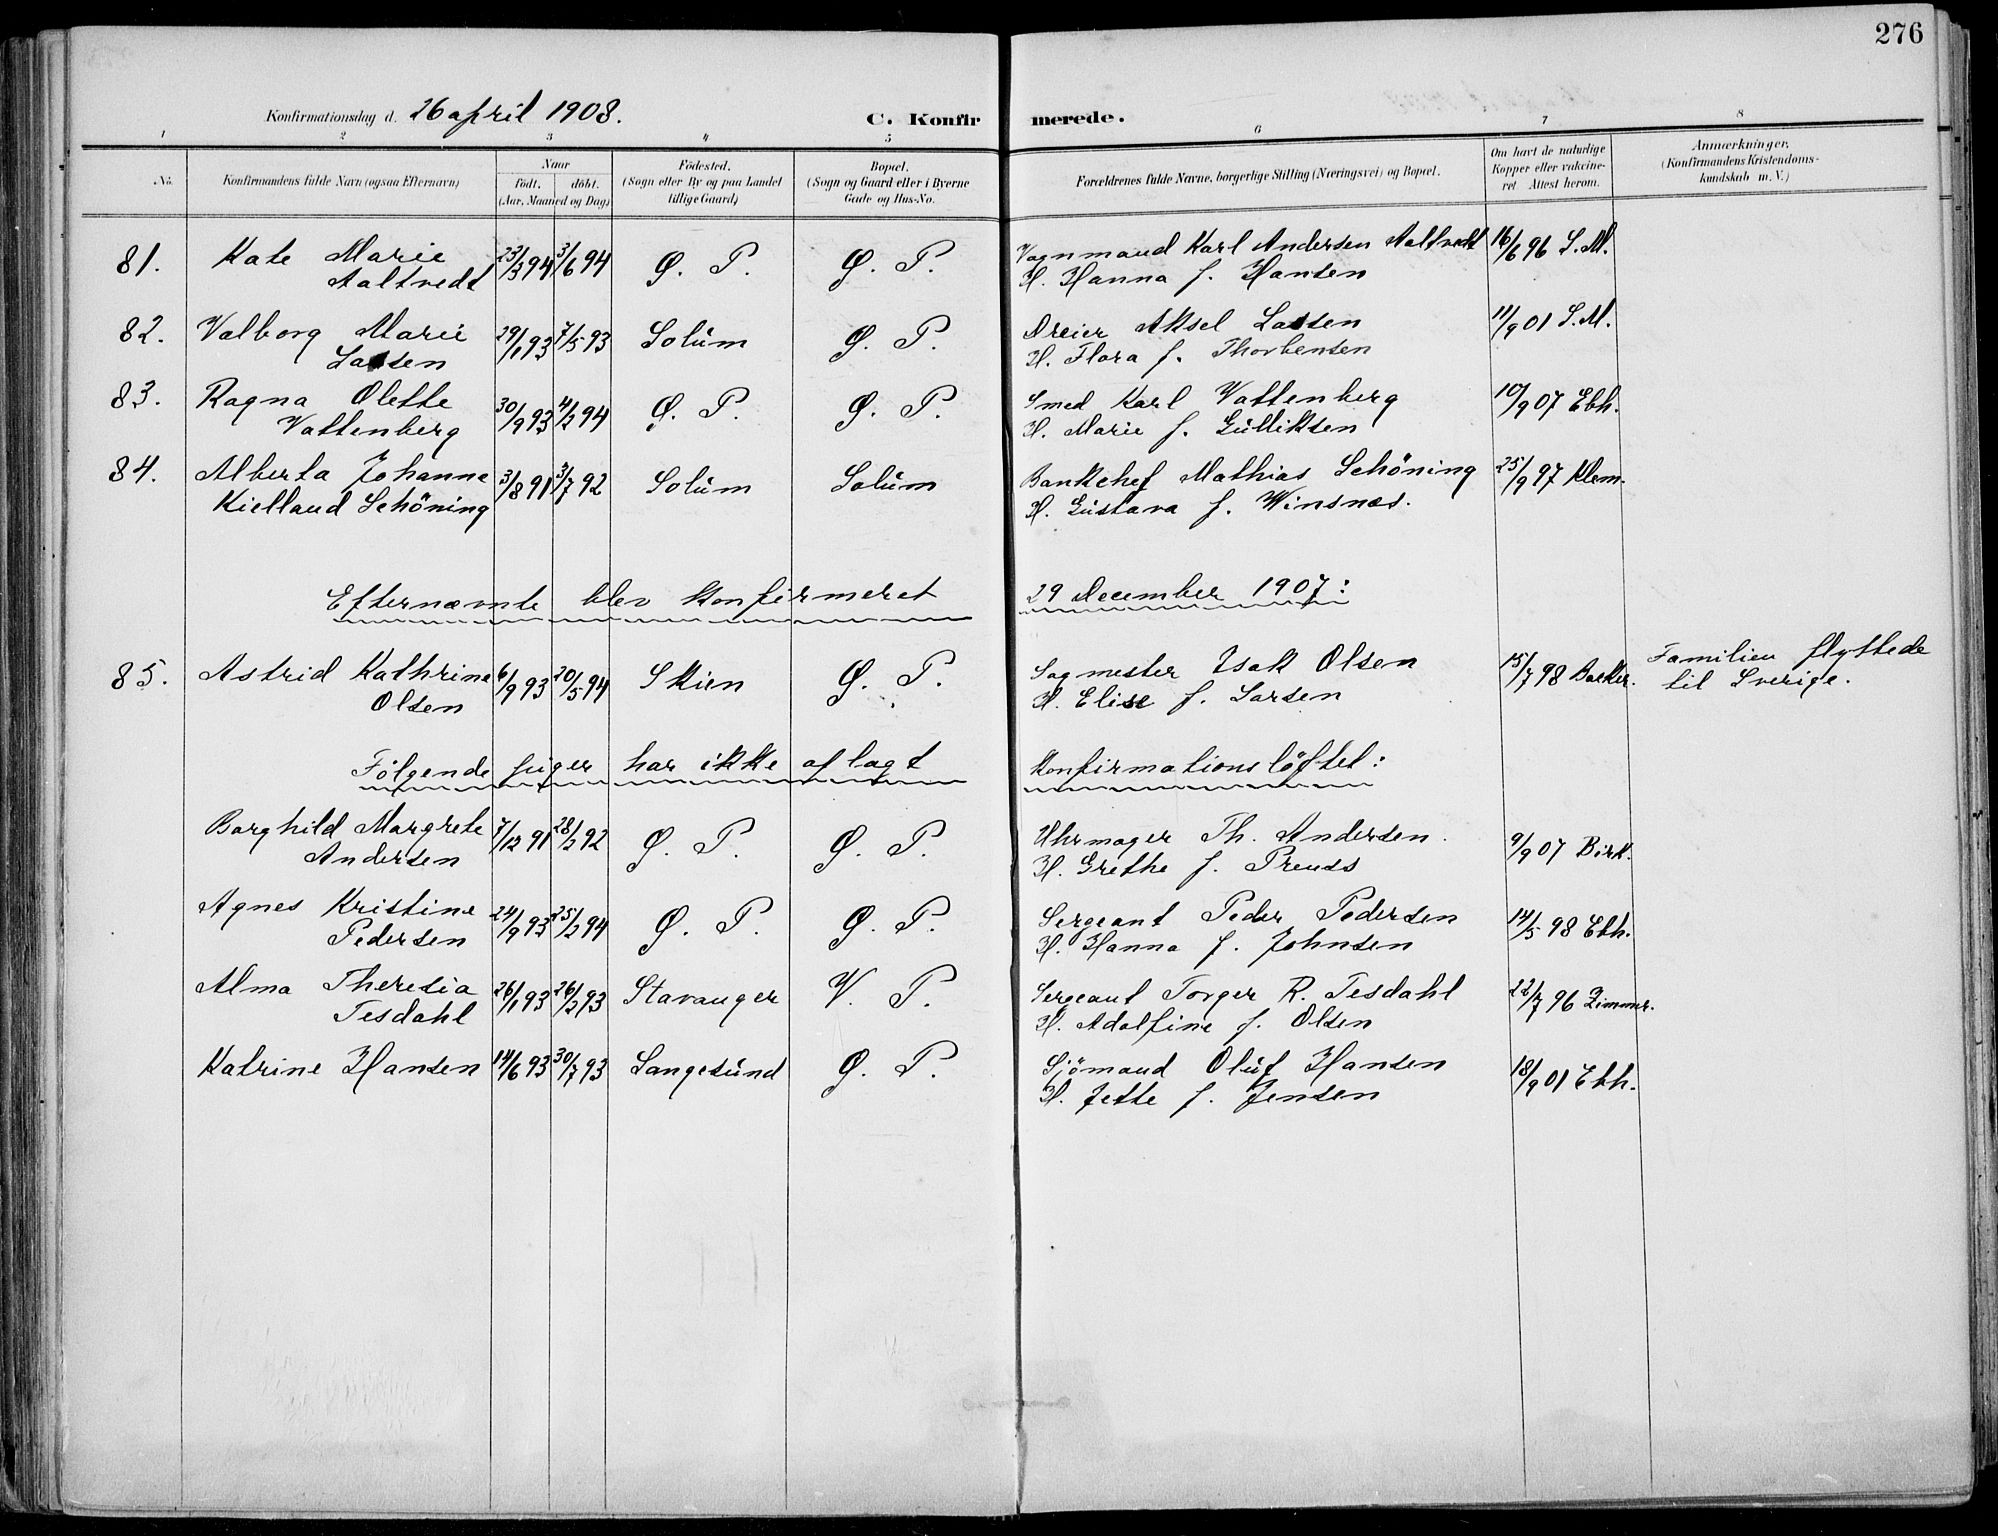 276
Konfirmationsdag d. 26 april 1908.
C. Konfirmerede.
1 2 3 4 5 6 7 8
No.
Konfirmandens fulde Navn (ogsaa Efternavn)
Naar
født. døbt.
(Aar, Maaned og Dag)
Fødested.
(Sogn eller By og paa Landet
tillige Gaard)
Bopæl.
(Sogn og Gaard eller i Byerne
Gade og Hus-No.
Forældrenes fulde Navne, borgerlige Stilling (Næringsvei) og Bopæl.
Om havt de naturlige
Kopper eller vakcine-
ret Attest herom.
Anmærkninger,
(Konfirmandens Kristendoms-
kundskab m. V.)
81. Kate Marie 23/3 94 3/6 94 Ø. P. Ø. P. Vognmand Karl Andersen Aaltvedt 16/6 96 S. M.
Aaltvedt H. Hanna f. Hansen
82. Valborg Marie 29/1 93 7/5 93 Solum Ø. P. Dreier Aksel Lassen 11/9 01 S. M.
Lassen H. Flora f. Thorbensen
83. Ragna Olette 30/9 93 4/2 94 Ø. P. Ø. P. Smed Karl Wattenberg 10/9 07 Ebh.
Wattenberg H. Marie f. Gulliksen
84. Alberta Johanne 3/8 91 3/7 92 Solum Solum Bankchef Mathias Schöning 25/9 97 Klem.
Kielland Schöning H. Gustava f. Winsnæs.
Efternævnte blev konfirmeret 29 December 1907:
85. Astrid Kathrine 6/9 93 20/5 94 Skien Ø. P. Sagmester Isak Olsen 15/7 98 Backer. Familien flyttede
Olsen H. Elise f. Larsen til Sverige.
Følgende piger har ikke aflagt konfirmationsløftet:
Borghild Margrete 7/12 91 28/2 92 Ø. P. Ø. P. Uhrmager Th. Andersen. 9/9 07 Birk.
Andersen H. Grethe f. Preuss
Agnes Kristine 24/9 93 25/2 94 Ø. P. Ø. P. Sergeant Peder Pedersen 14/5 98 Ebh.
Pedersen H. Hanna f. Johnsen
Alma Theresia 26/1 93 26/2 93 Stavanger V. P. Sergeant Torger R. Tesdahl 22/7 96 Zimmer.
Tesdahl H. Adolfine f. Olsen
Katrine Hansen 14/6 93 30/7 93 Langesund Ø. P. Sjömand Oluf Hansen 18/9 01 Ebh.
H. Jette f. Jensen